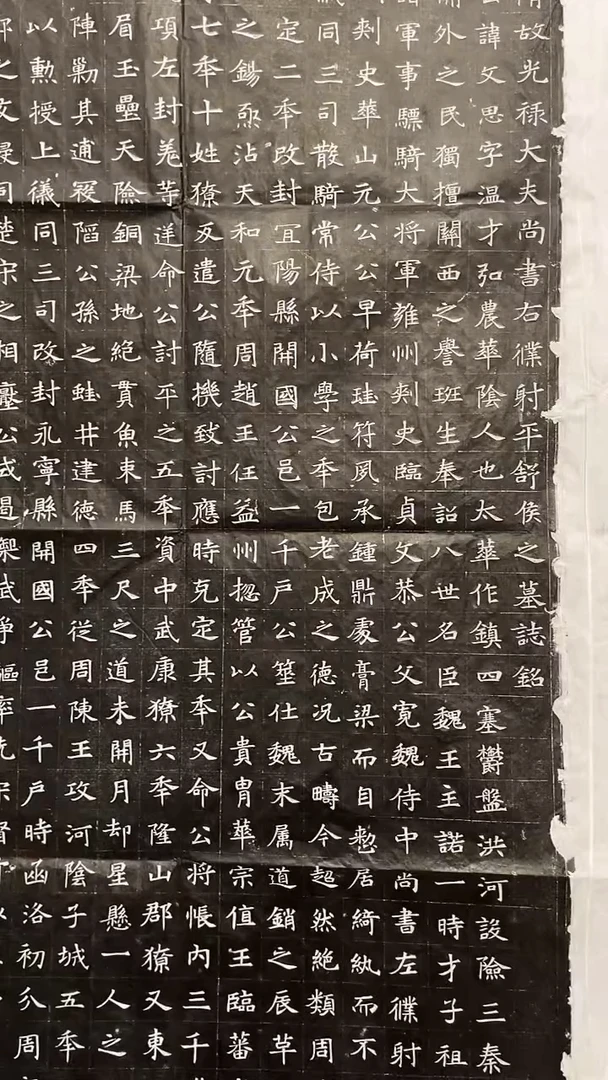 故光祿大夫尚書右僕射平舒侯之墓誌銘
諱文思字溫才弘農華陰人也太華作鎮四塞鬱盤洪河設險三秦
外之民獨擅關西之譽斑生奉詔八世名臣魏王主諾一時才子祖
軍事驃騎大將軍雍州刺史臨貞文恭公父寬魏侍中尚書左僕射
刺史華山元公公早荷珪符夙承鍾鼎處膏粱而自懃居綺紈而不
同三司散騎常侍以小學之秊包老成之德況古疇今超然絕類周
定二秊改封宜陽縣開國公邑一千戶公筮仕魏末屬道銷之辰草
之錫沾天和元秊周趙王任益州揔管以公貴胄華宗值王臨蕃
七秊十姓獠反遣公隨機致討應時克定其秊又命公將帳內三千
項左封羌等送命公討平之五秊資中武康獠六秊隆山郡獠又東
眉玉壘天險銅梁地絕貫魚束馬三尺之道未開月却星懸一人之
陣勦其逋寇陷公孫之蛙井建德四秊從周陳王攻河陰子城五秊
以勳授上儀同三司改封永寧縣開國公邑一千戶時函洛初尒周
之相